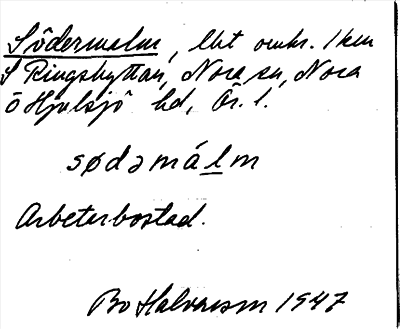 Södermalm, lht omkr. 1 km
S Ringshyttan, Nora sn, Nora
o Hjulsjö bd, Ör. l.
sødəmálm
Arbetarbostad.
Bo Halvarson 1947